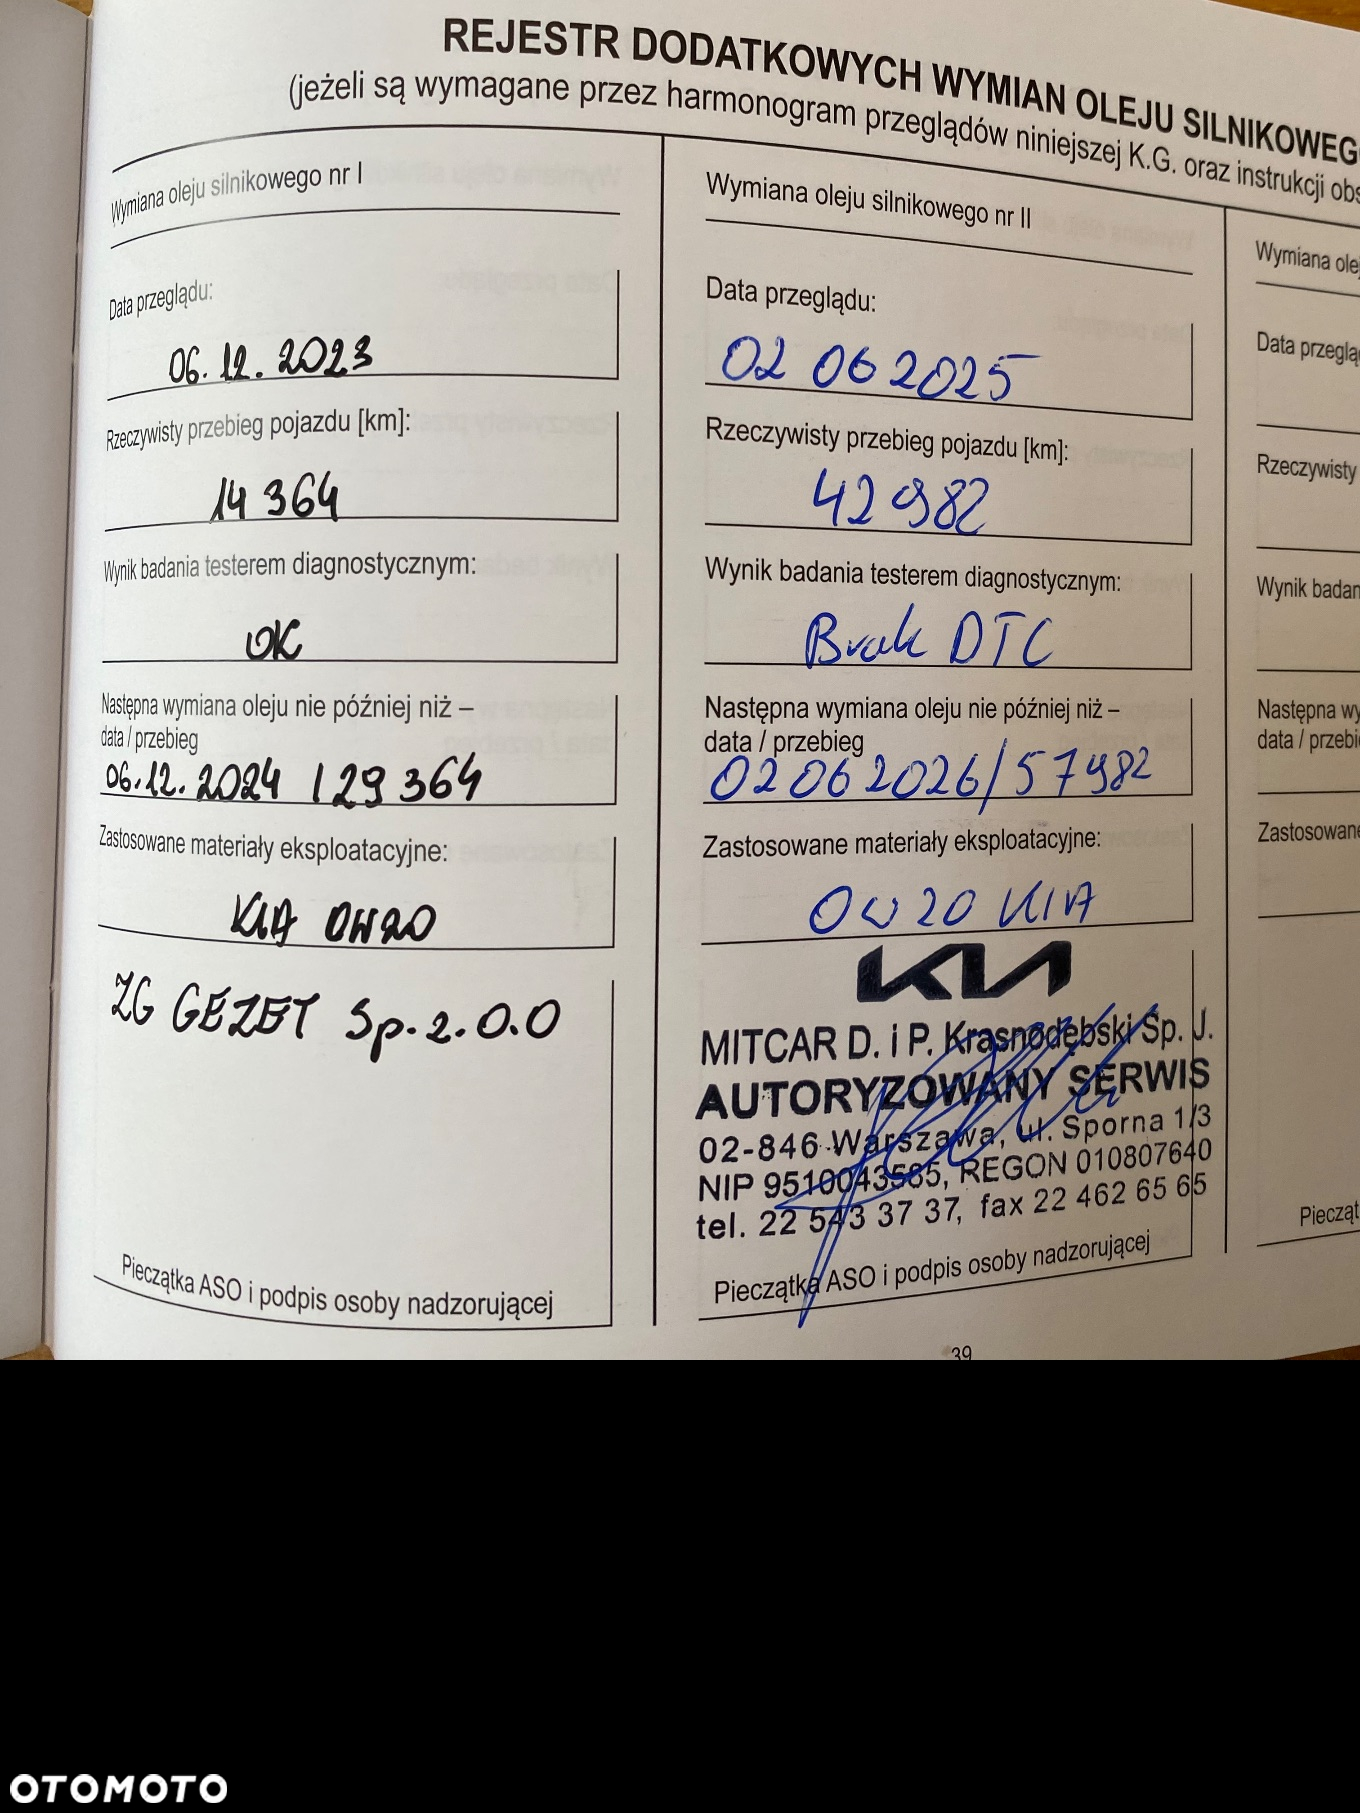 REJESTR DODATKOWYCH WYMIAN OLEJU SILNIKOWEG
(jeżeli są wymagane przez harmonogram przeglądów niniejszej K.G. oraz instrukcji obs
Wymiana oleju silnikowego nr I
Data przeglądu:
06.12.2023
Rzeczywisty przebieg pojazdu [km]:
14 364
Wynik badania testerem diagnostycznym:
OK
Następna wymiana oleju nie później niż –
data / przebieg
06.12.2024 / 29 364
Zastosowane materiały eksploatacyjne:
KIA 0W20
ZG GEZET Sp.z.O.O
Pieczątka ASO i podpis osoby nadzorującej
Wymiana oleju silnikowego nr II
Data przeglądu:
02 06 2025
Rzeczywisty przebieg pojazdu [km]:
42 982
Wynik badania testerem diagnostycznym:
Brak DTC
Następna wymiana oleju nie później niż –
data / przebieg
02 06 2026/57982
Zastosowane materiały eksploatacyjne:
0W20 KIA
KIA
MITCAR D. i P. Krasnodębski Sp. J.
AUTORYZOWANY SERWIS
02-846 Warszawa, ul. Sporna 1/3
NIP 9510043585, REGON 010807640
tel. 22 543 37 37, fax 22 462 65 65
Pieczątka ASO i podpis osoby nadzorującej
Wymiana ole
Data przeglą
Rzeczywisty
Wynik badan
Następna wy
data / przebi
Zastosowane
Piecząt
39
OTOMOTO